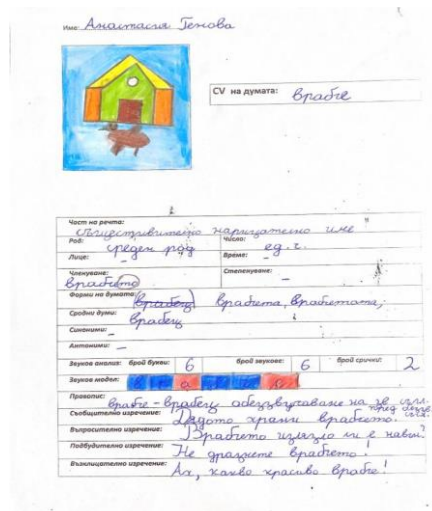 Име: Анастасия Генова
CV на думата: врабче
Част на речта:
съществително нарицателно име
Род: среден род Число: ед.ч.
Лице: – Време: –
Членуване: врабчето Степенуване: –
Форми на думата: врабчета, врабчетата,
Сродни думи: врабец
Синоними: –
Антоними: –
Звуков анализ: брой букви: 6 брой звукове: 6 брой срички: 2
Звуков модел:
Правопис: врабче – врабец обеззвучаване на зв. съгл.
пред беззв. съгл.
Съобщително изречение: Дядото храни врабчето.
Въпросително изречение: Врабчето излязло ли е навън?
Подбудително изречение: Не дразнете врабчето!
Възклицателно изречение: Ах, какво красиво врабче!